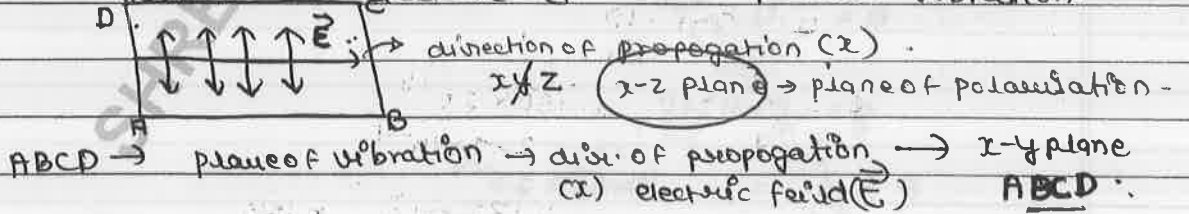 D C
E → direction of propogation (x).
xyz. x-z plane → plane of polarisation-
A B
ABCD → plane of vibration → dir. of propogation → x-y plane
(x) electric feild (E) ABCD.